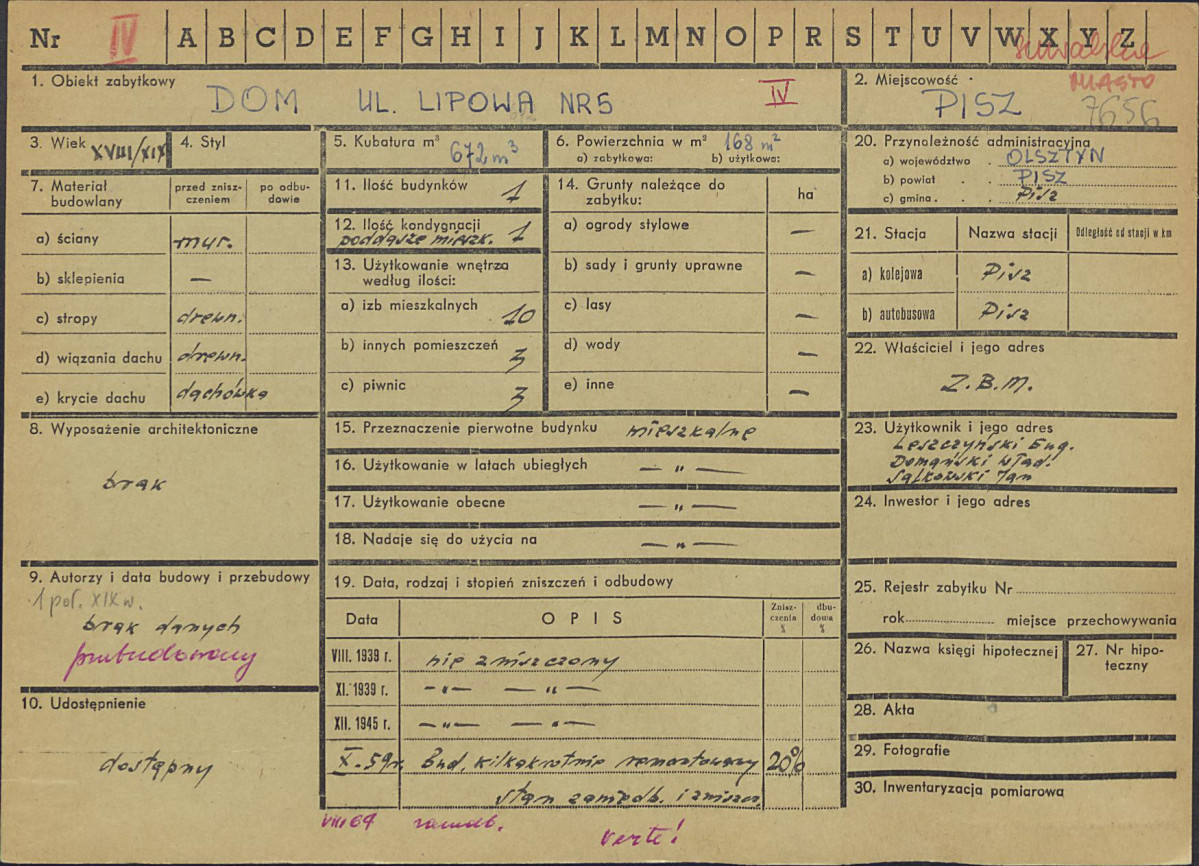 Nr IV A B C D E F G H I J K L M N O P R S T U V W X Y Z
suwalskie
MIASTO
1. Obiekt zabytkowy
DOM UL. LIPOWA NR 5 IV
2. Miejscowość
PISZ 7656
3. Wiek XVIII/XIX
4. Styl
5. Kubatura m³ 672 m³
6. Powierzchnia w m² 168 m²
a) zabytkowa: b) użytkowa:
7. Materiał budowlany
przed zniszczeniem
po odbudowie
a) ściany mur.
b) sklepienia —
c) stropy drewn.
d) wiązania dachu drewn.
e) krycie dachu dachówka
8. Wyposażenie architektoniczne
brak
9. Autorzy i data budowy i przebudowy
1 poł. XIX w.
brak danych
przebudowany
10. Udostępnienie
dostępny
11. Ilość budynków 1
12. Ilość kondygnacji 1
poddasze mieszk.
13. Użytkowanie wnętrza
według ilości:
a) izb mieszkalnych 10
b) innych pomieszczeń 3
c) piwnic 3
14. Grunty należące do
zabytku: ha
a) ogrody stylowe —
b) sady i grunty uprawne —
c) lasy —
d) wody —
e) inne —
15. Przeznaczenie pierwotne budynku mieszkalne
16. Użytkowanie w latach ubiegłych — „ —
17. Użytkowanie obecne — „ —
18. Nadaje się do użycia na — „ —
19. Data, rodzaj i stopień zniszczeń i odbudowy
Data OPIS Zniszczenia % dbudowa %
VIII. 1939 r. nie zniszczony
XI. 1939 r. — „ — — „ —
XII. 1945 r. — „ — — „ —
X. 59r. Bud. kilkakrotnie remontowany 20%
stan zaniedb. i zniszcz.
VIII 64 zaniedb.
verte!
20. Przynależność administracyjna
a) województwo OLSZTYN
b) powiat PISZ
c) gmina Pisz
21. Stacja Nazwa stacji Odległość od stacji w km
a) kolejowa Pisz
b) autobusowa Pisz
22. Właściciel i jego adres
Z.B.M.
23. Użytkownik i jego adres
Leszczyński Eug.
Domański Wład.
Sałkowski Jan
24. Inwestor i jego adres
25. Rejestr zabytku Nr
rok miejsce przechowywania
26. Nazwa księgi hipotecznej
27. Nr hipoteczny
28. Akta
29. Fotografie
30. Inwentaryzacja pomiarowa